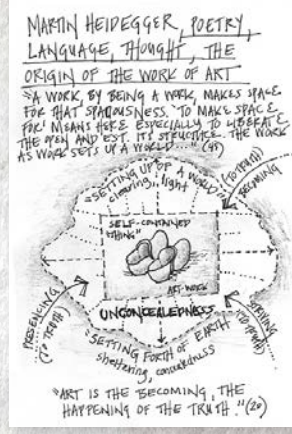 MARTIN HEIDEGGER, POETRY,
LANGUAGE, THOUGHT, THE
ORIGIN OF THE WORK OF ART
"A WORK, BY BEING A WORK, MAKES SPACE
FOR THAT SPACIOUSNESS. "TO MAKE SPACE
FOR" MEANS HERE ESPECIALLY TO LIBERATE
THE OPEN AND EST. ITS STRUCTURE. THE WORK
AS WORK SETS UP A WORLD..." (45)
"SETTING UP OF A WORLD"
clearing, light
(TO TRUTH)
BECOMING
SELF-CONTAINED
"THING"
ART-WORK
UNCONCEALEDNESS
PRESENCING
(TO TRUTH)
ARRIVING
(TO TRUTH)
"SETTING FORTH OF EARTH"
sheltering, concealedness
"ART IS THE BECOMING, THE
HAPPENING OF THE TRUTH."